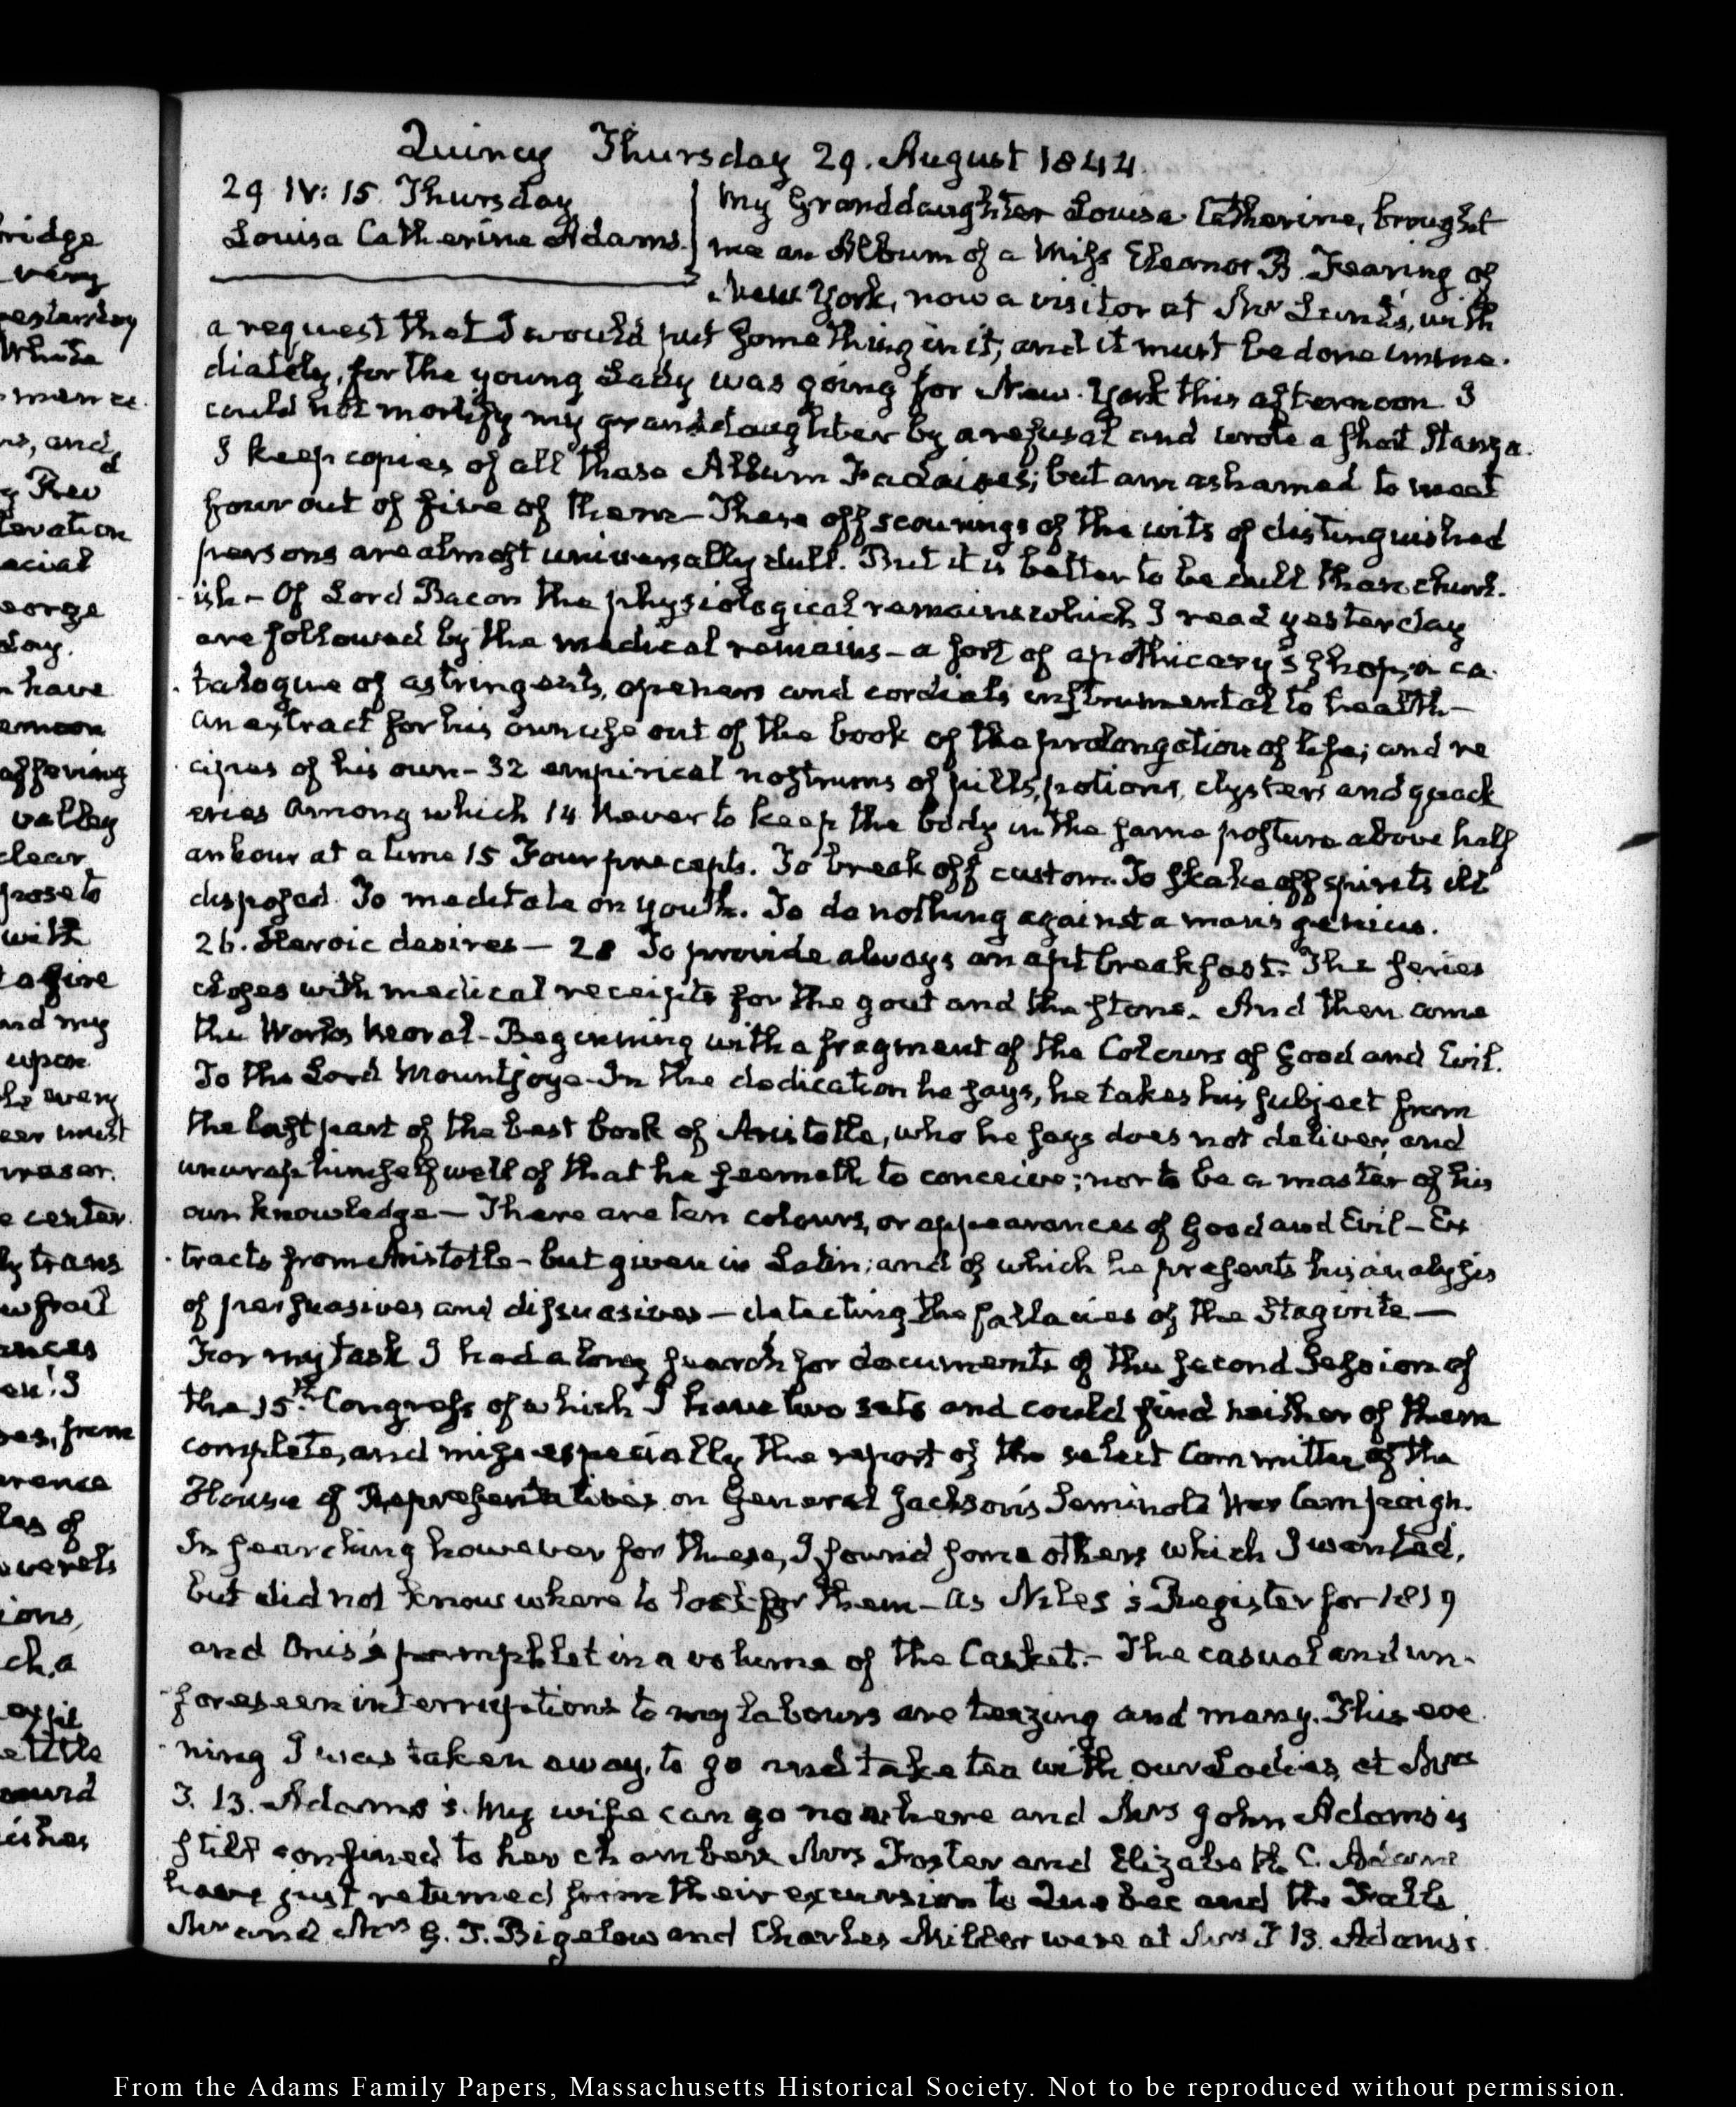 Quincy Thursday 29. August 1844.
29 IV: 15. Thursday
Louisa Catherine Adams.
My Granddaughter Louisa Catherine, brought
me an Album of a Miss Eleanor B. Fearing of
New York, now a visitor at Mr Lunt's, with
a request that I would put something in it, and it must be done imme-
diately, for the young Lady was going for New-York this afternoon. I
could not mortify my granddaughter by a refusal and wrote a short Stanza.
I keep copies of all these Album Fadaises; but am ashamed to meet
four out of five of them— These offscourings of the wits of distinguished
persons are almost universally dull. But it is better to be dull than churl-
ish— Of Lord Bacon the physiological remains which I read yesterday
are followed by the medical remains— a sort of apothicary's shop, a ca-
talogue of astringents, openers and cordials instrumental to health—
an extract for his own use out of the book of the prolongation of life; and re
cipes of his own— 32 empirical nostrums of pills, potions, clysters and quack
eries among which 14 Never to keep the body in the same posture above half
an hour at a time 15 Four precepts. To break off custom. To shake off spirits ill
disposed. To meditate on youth. To do nothing against a man's genius.
26. Heroic desires— 28 To provide always an apt breakfast. The series
closes with medical receipts for the gout and the stone. And then come
the Works Moral— Beginning with a fragment of the Colours of Good and Evil.
To the Lord Mountjoye— In the dedication he says, he takes his subject from
the last part of the best book of Aristotle, who he says does not deliver, and
unwrap himself well of that he seemeth to conceive; nor to be a master of his
own knowledge— There are ten colours, or appearances of Good and Evil— Ex
tracts from Aristotle— but given in Latin; and of which he presents his analysis
of persuasives and dissuasives— detecting the fallacies of the Stagirite—
For my task I had a long search for documents of the second Session of
the 15th Congress of which I have two sets and could find neither of them
complete, and miss especially the report of the select Committee of the
House of Representatives on General Jackson's Seminole War Campaign.
In searching however for these, I found some others which I wanted,
but did not know where to look for them— as Niles's Register for 1819
and Onis's pamphlet in a volume of the Casket.— The casual and un-
foreseen interruptions to my labours are teazing and many. This eve
ning I was taken away, to go and take tea with our Ladies, at Mrs
T. B. Adams's. My wife can go no where and Mrs John Adams is
still confined to her chamber. Mrs Foster and Elizabeth C. Adams
have just returned from their excursion to Quebec and the Falls.
Mr and Mrs G. T. Bigelow and Charles Miller were at Mrs T B. Adams's.
ridge
very
yesterday
White
mance.
and
Rev
social
George
day.
have
offering
valley
clear
with
a fire
and my
upon
every
must
center.
trans
ances
from
of
ions,
ch, a
From the Adams Family Papers, Massachusetts Historical Society. Not to be reproduced without permission.